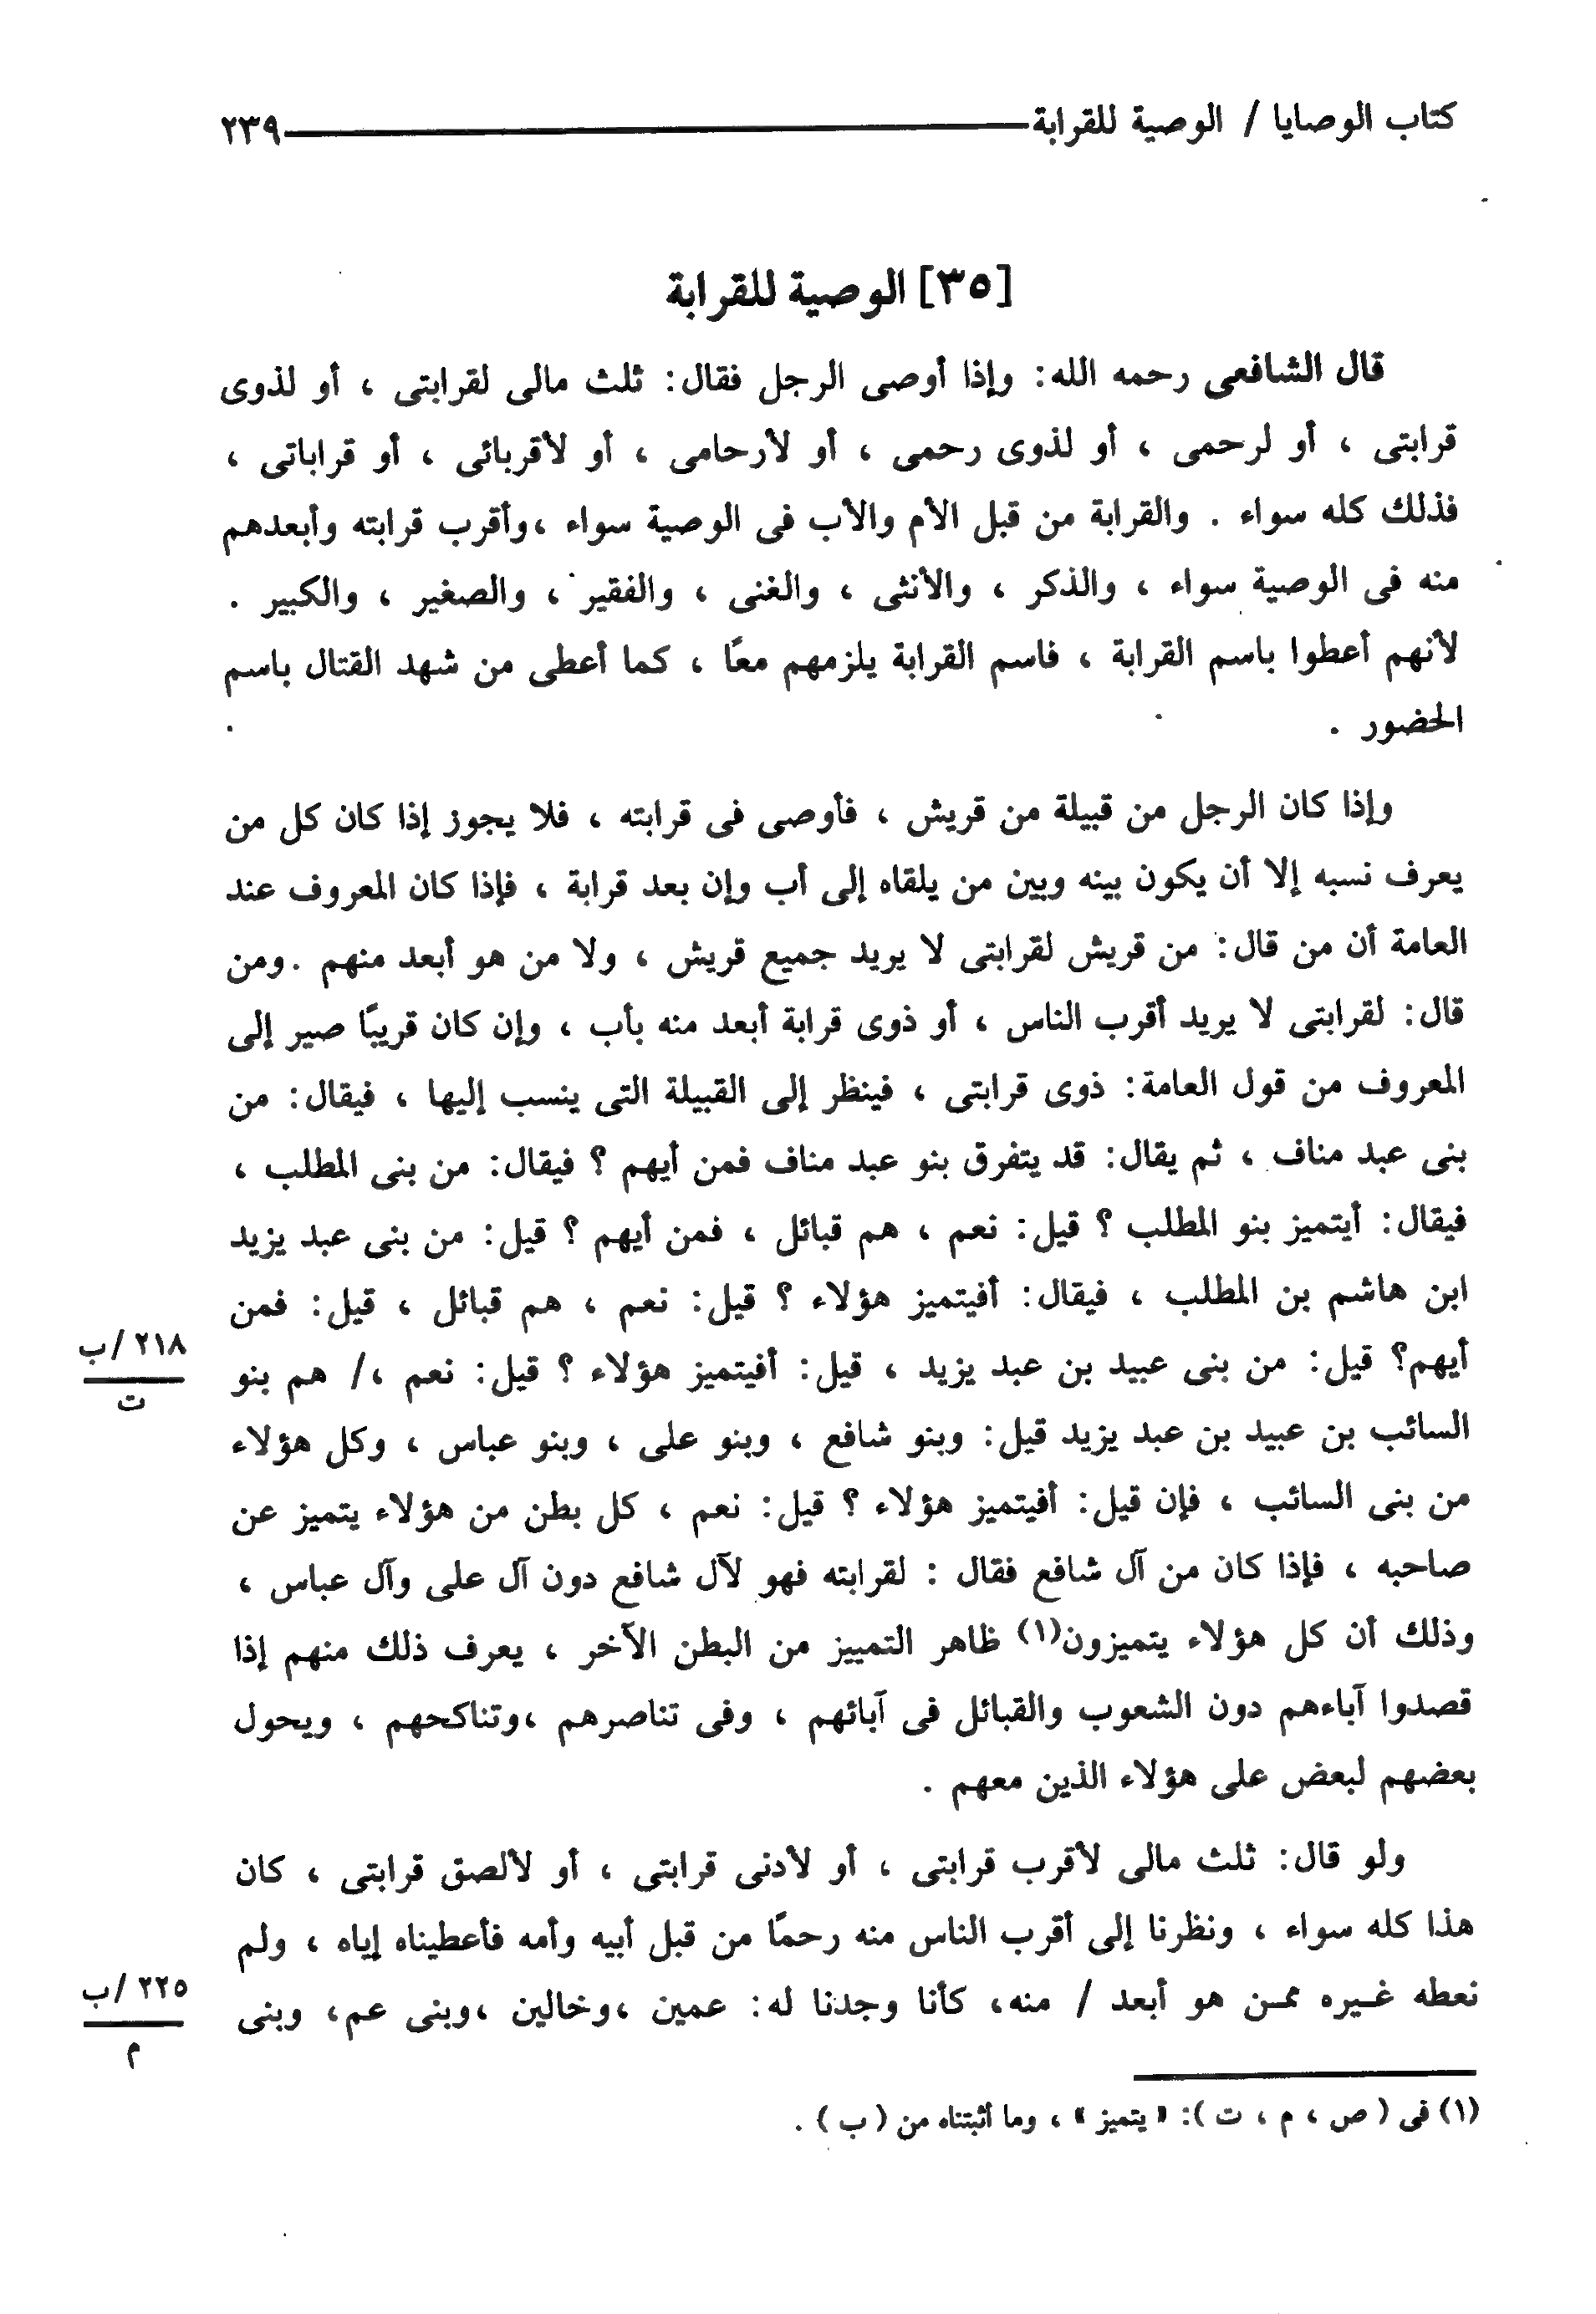 كتاب الوصايا / الوصية للقرابة ٢٣٩
[٣٥] الوصية للقرابة
قال الشافعى رحمه الله: وإذا أوصى الرجل فقال: ثلث مالى لقرابتى ، أو لذوى
قرابتى ، أو لرحمى ، أو لذوى رحمى ، أو لأرحامى ، أو لأقربائى ، أو قراباتى ،
فذلك كله سواء . والقرابة من قبل الأم والأب فى الوصية سواء ،وأقرب قرابته وأبعدهم
منه فى الوصية سواء ، والذكر ، والأنثى ، والغنى ، والفقير ، والصغير ، والكبير .
لأنهم أعطوا باسم القرابة ، فاسم القرابة يلزمهم معًا ، كما أعطى من شهد القتال باسم
الحضور .
وإذا كان الرجل من قبيلة من قريش ، فأوصى فى قرابته ، فلا يجوز إذا كان كل من
يعرف نسبه إلا أن يكون بينه وبين من يلقاه إلى أب وإن بعد قرابة ، فإذا كان المعروف عند
العامة أن من قال: من قريش لقرابتى لا يريد جميع قريش ، ولا من هو أبعد منهم .ومن
قال: لقرابتى لا يريد أقرب الناس ، أو ذوى قرابة أبعد منه بأب ، وإن كان قريبًا صير إلى
المعروف من قول العامة: ذوى قرابتى ، فينظر إلى القبيلة التى ينسب إليها ، فيقال: من
بنى عبد مناف ، ثم يقال: قد يتفرق بنو عبد مناف فمن أيهم ؟ فيقال: من بنى المطلب ،
فيقال: أيتميز بنو المطلب ؟ قيل: نعم ، هم قبائل ، فمن أيهم ؟ قيل: من بنى عبد يزيد
ابن هاشم بن المطلب ، فيقال: أفيتميز هؤلاء ؟ قيل: نعم ، هم قبائل ، قيل: فمن
أيهم؟ قيل: من بنى عبيد بن عبد يزيد ، قيل: أفيتميز هؤلاء ؟ قيل: نعم ،/ هم بنو
٢١٨ /ب
ت
السائب بن عبيد بن عبد يزيد قيل: وبنو شافع ، وبنو على ، وبنو عباس ، وكل هؤلاء
من بنى السائب ، فإن قيل: أفيتميز هؤلاء ؟ قيل: نعم ، كل بطن من هؤلاء يتميز عن
صاحبه ، فإذا كان من آل شافع فقال : لقرابته فهو لآل شافع دون آل على وآل عباس ،
وذلك أن كل هؤلاء يتميزون(١) ظاهر التمييز من البطن الآخر ، يعرف ذلك منهم إذا
قصدوا آباءهم دون الشعوب والقبائل فى آبائهم ، وفى تناصرهم ،وتناكحهم ، ويحول
بعضهم لبعض على هؤلاء الذين معهم .
ولو قال: ثلث مالى لأقرب قرابتى ، أو لأدنى قرابتى ، أو لألصق قرابتى ، كان
هذا كله سواء ، ونظرنا إلى أقرب الناس منه رحمًا من قبل أبيه وأمه فأعطيناه إياه ، ولم
نعطه غيره ممن هو أبعد / منه، كأنا وجدنا له: عمين ،وخالين ،وبنى عم، وبنى
٢٢٥ /ب
م
(١) فى ( ص ، م ، ت ): « يتميز » ، وما أثبتناه من ( ب ) .